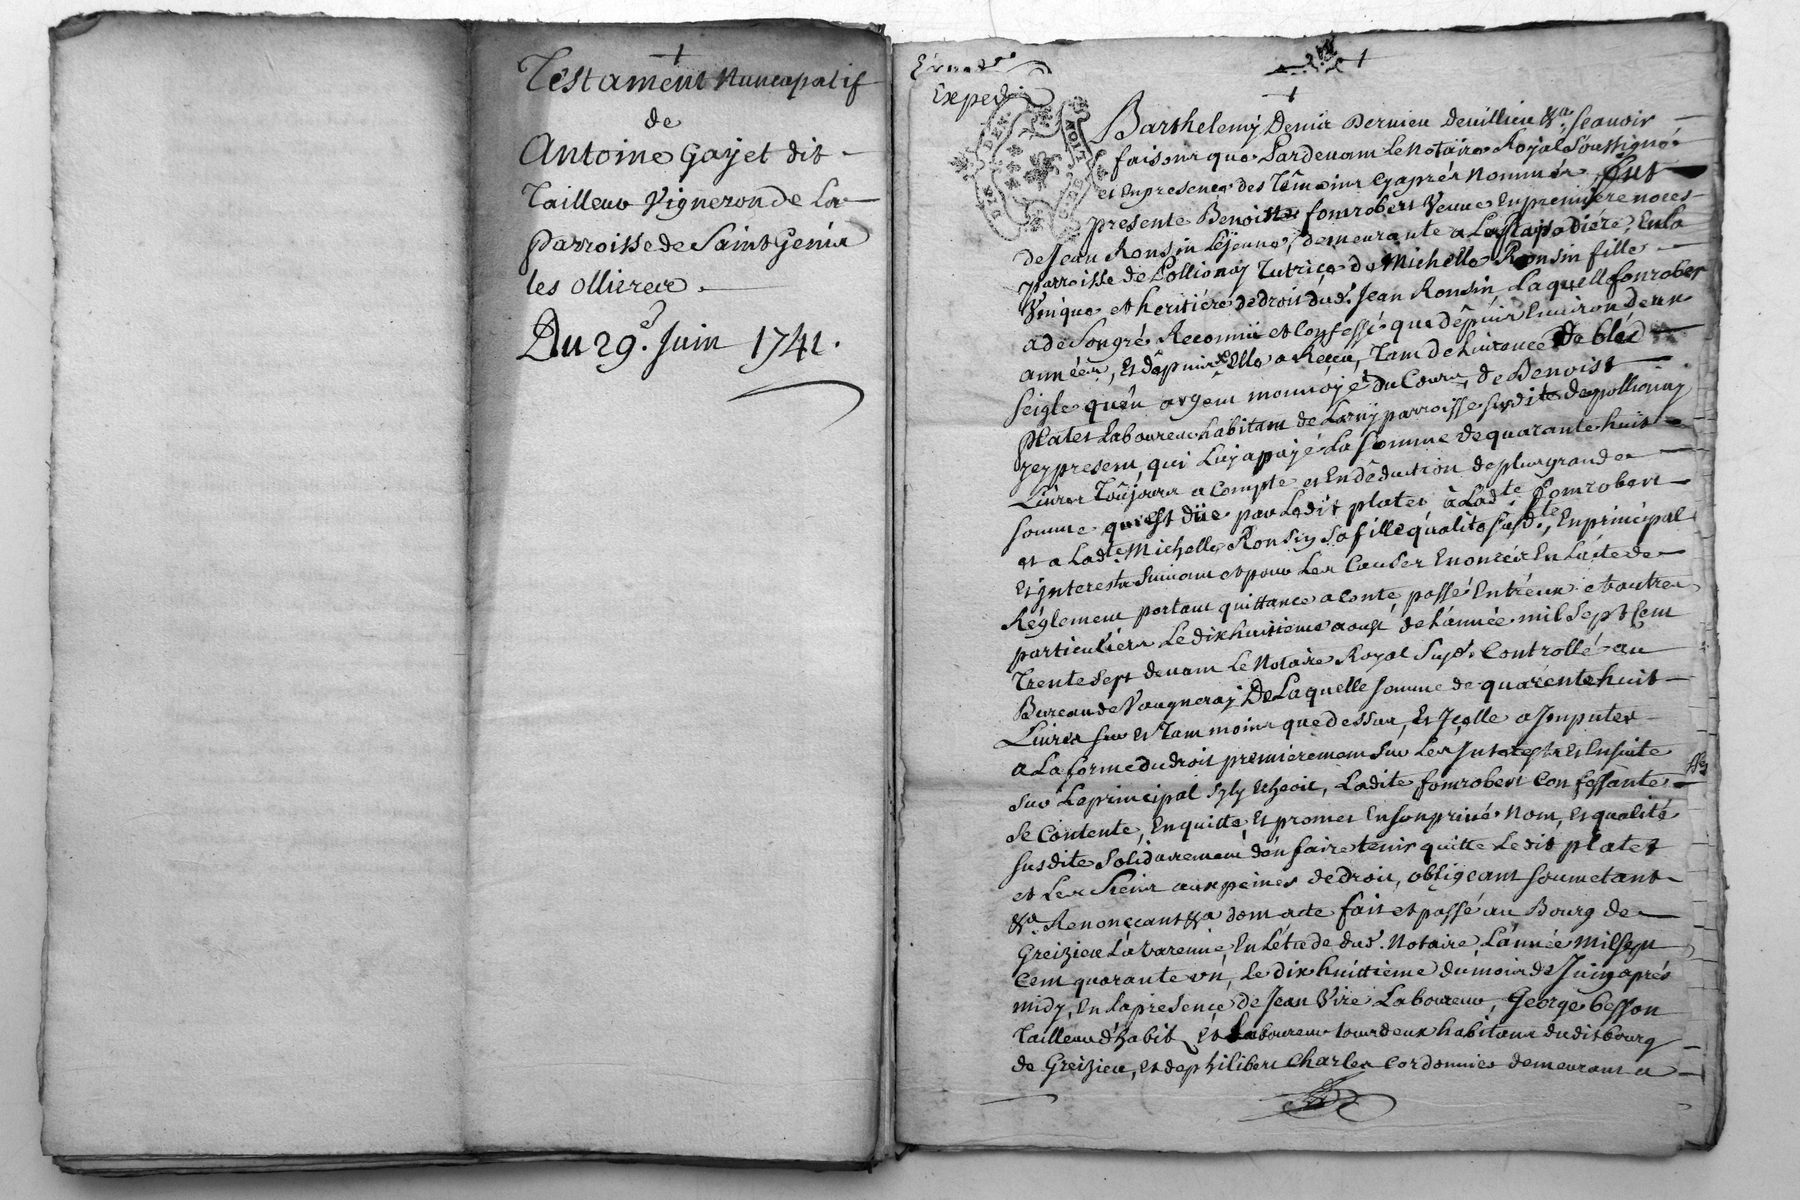 Testament Nuncupatif
de
Antoine Gayet dit
Tailleur Vigneron de la
parroisse de Saint Genis
les ollieres.
Du 29e. Juin 1741.
Expedié
Barthelemy Denis Dervieu Deuillieu &a. scavoir
faisons que Pardevant Le Notaire Royal Soussigné
et En presence des Témoins Cyaprés Nommés fut
presente Benoiste fomrobert Veuve En premiere noces
de Jean Ronsin Lejeune, demeurante a En la
parroisse de Pollionay Tutrice de Michelle Ronsin fille
Vnique et heritiére de droit dud. Jean Ronsin Laquelle fomrobert
a de Son gré Reconnû et Confessé que depuis Environ deux
années, Elle a Reçu, Tant de Livrance De bled
seigle qu'en argent monnoyé du Cours, de Benoist
Platet Laboureur habitant de Larny parroisse susdite de pollionay
Jcy present, qui Luy a payé La Somme de quarante huit
Livres Toûjours a Compte et En déduction de plus grande
Somme qui Est düe par Ledit platet à Ladte. fomrobert
et a Ladte. Michelle Ronsin Sa fille qualité susdte., En principal
Et Jnterests Suivant et pour Les Causes Enoncées En L'acte de
Réglement portant quittance a Conte passé Entréux et autres
particuliers Le dix huitieme aoust de L'année mil Sept Cent
Trente Sept devant Le Notaire Royal Susd. Controllé au
Bureau de Vaugneray De Laquelle Somme de quarente huit
Livres sur et Tant moins que dessus, Et Jcelle a Jmputer
a La forme du droit premierement Sur Les Jnterests Et Ensuite
sur Le principal Sy y Echeoit, Ladite fomrobert Confessante
Se Contente, En quitte, Et promet En Son privé Nom, Et qualité
susdite Solidairement d'en faire tenir quitte Ledit platet
et Les Siens aux peines de droit, obligeant soumetant
&a. Renonçant &a dont acte fait et passé au Bourg de
Greizieu La Varenne, En L'étude dud. Notaire L'année mil Sept
Cent quarante vn, Le dix huittième du mois de Juin aprés
midy, En La présence de Jean Viré Laboureur, George besson
Tailleur d'habit, Et Laboureur tous deux habitans dudit bourg
de Greizieu, Et de philibert Charles Cordonnier demeurant a